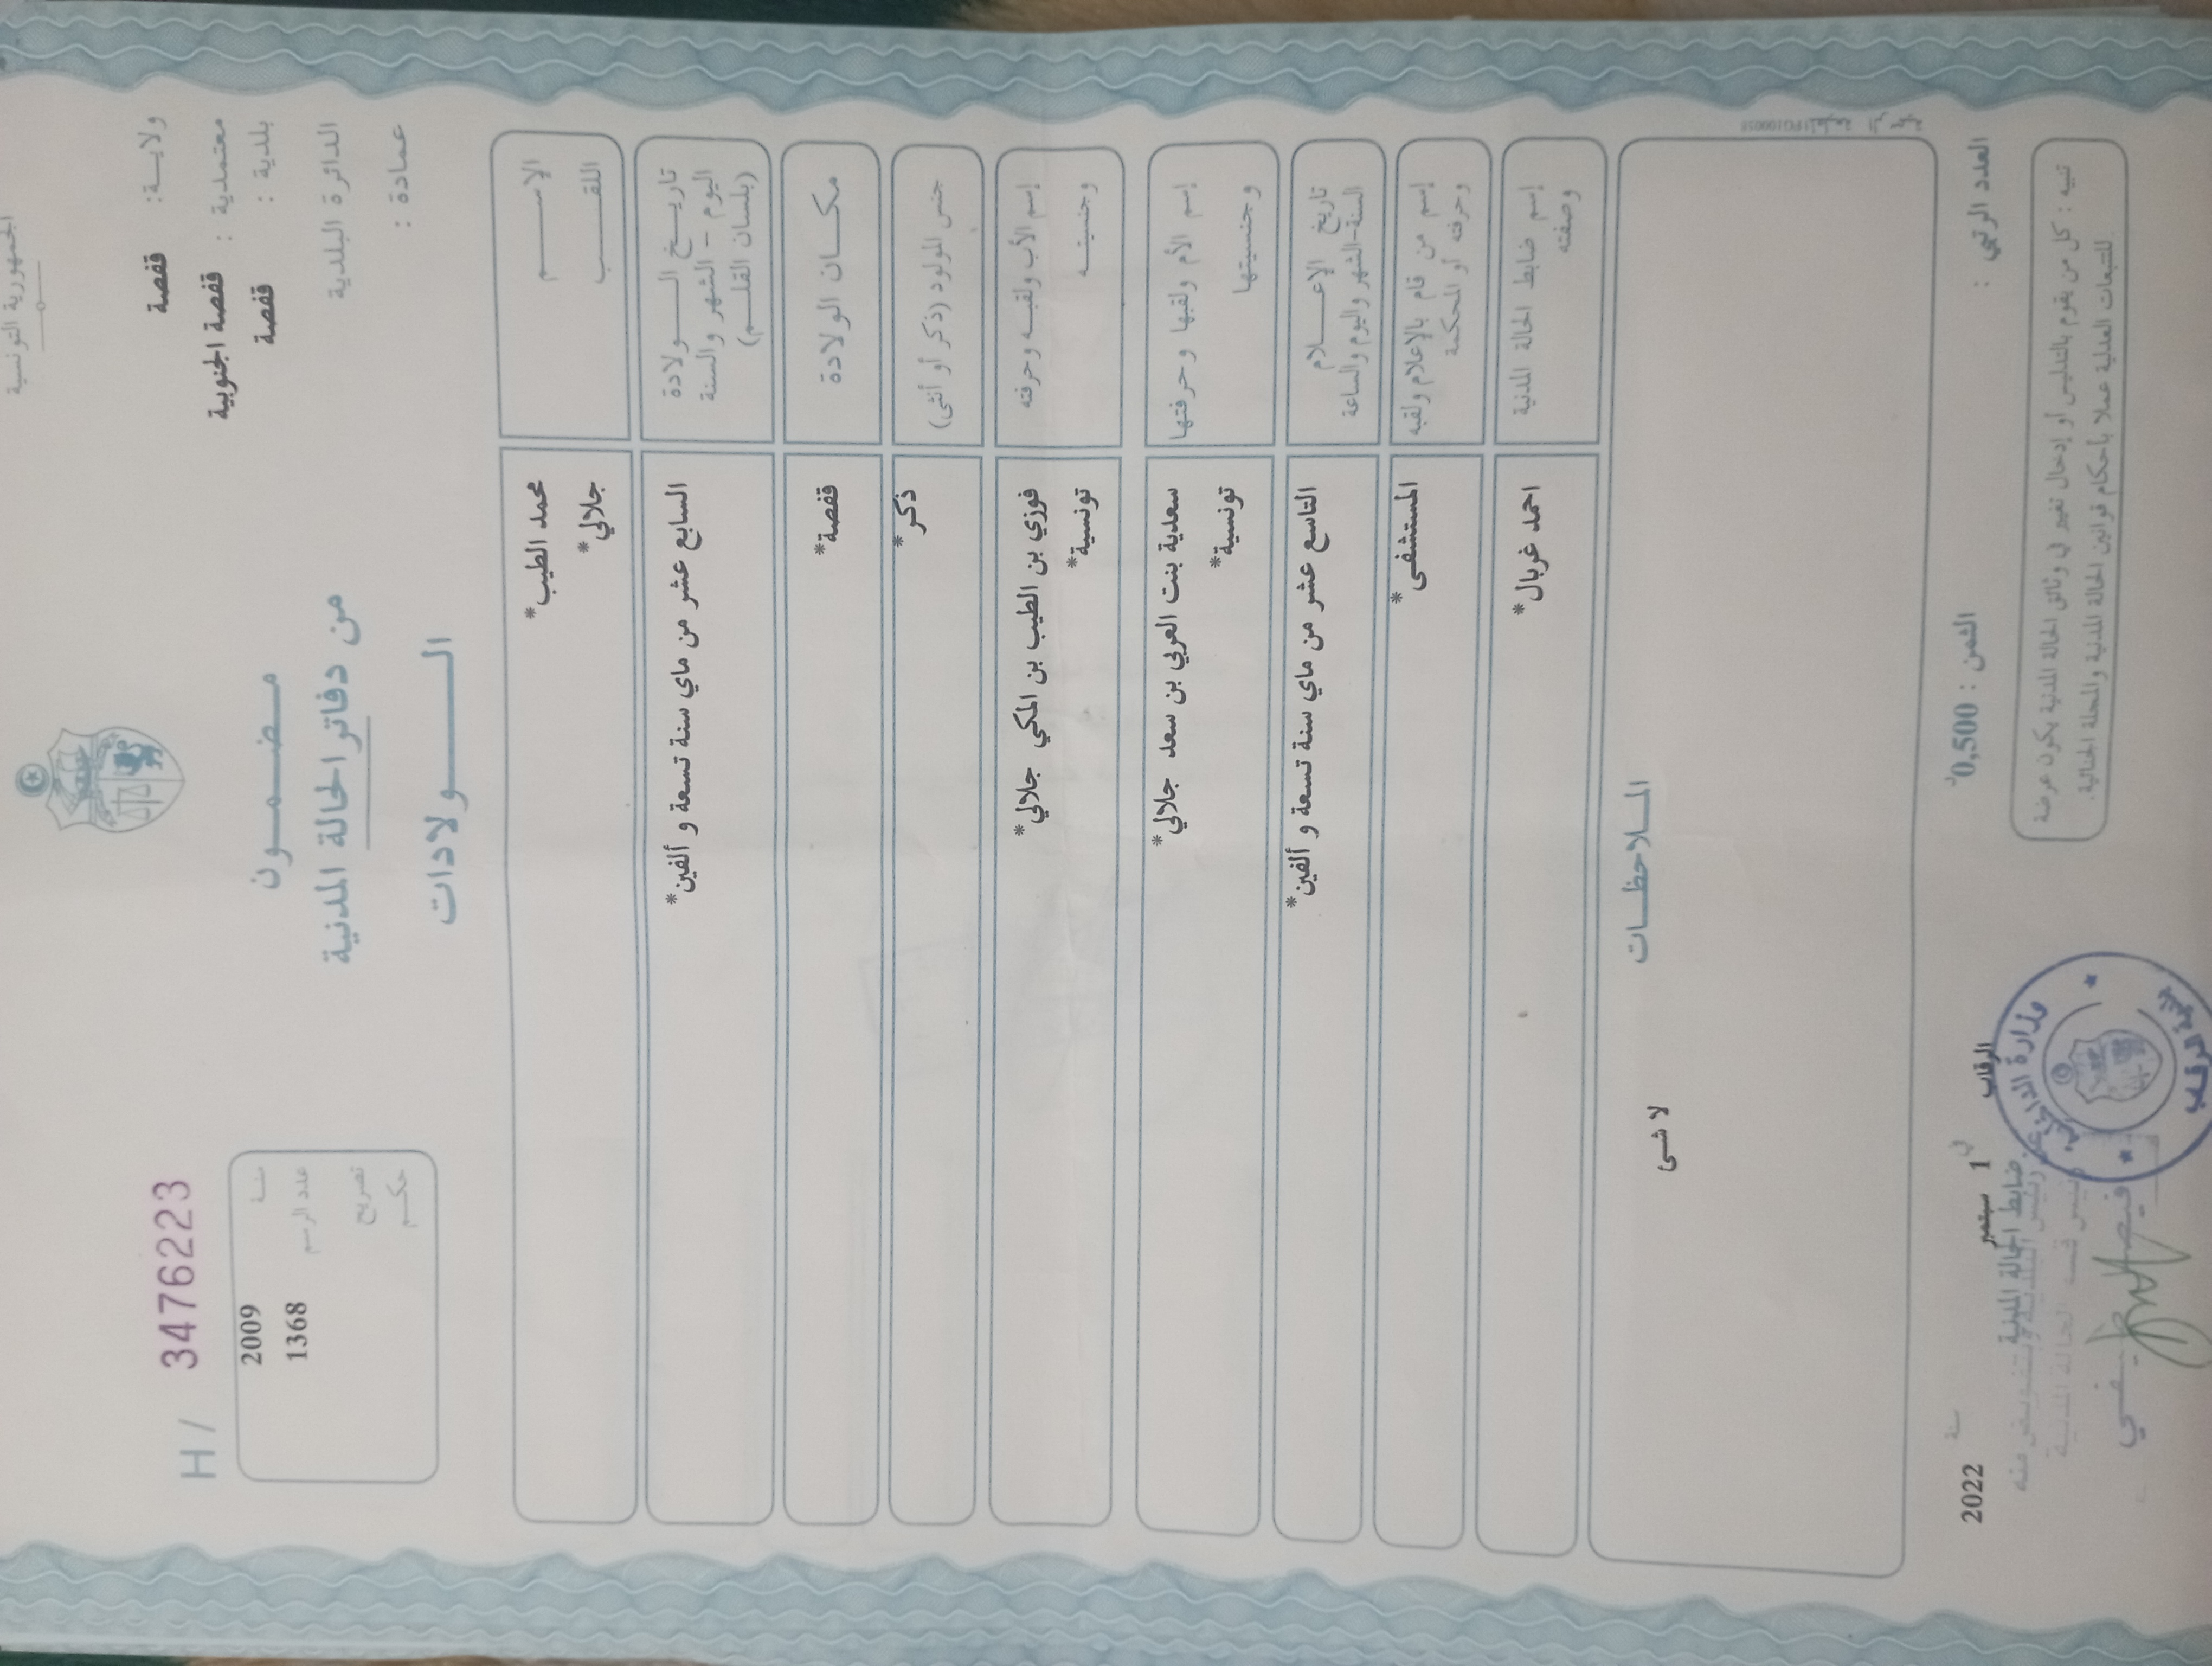 الجمهورية التونسية
ولايــة: قفصة
معتمدية : قفصة الجنوبية
بلدية : قفصة
الدائرة البلدية
عمادة :
مـضـمـون
من دفاتر الحالة المدنية
الـــولادات
H / 3476223
سنة 2009
عدد الرسم 1368
تصريح
حكم
الإســـم محمد الطيب*
اللقـــب جلالي*
تاريــخ الــولادة
اليوم - الشهر والسنة
(بلسان القلــم)
السابع عشر من ماي سنة تسعة و ألفين*
مكــان الولادة قفصة*
جنس المولود (ذكر أو أنثى) ذكر*
إسم الأب ولقبــه وحرفته فوزي بن الطيب بن المكي جلالي*
وجنسيتــه تونسية*
إسم الأم ولقبها وحرفتها سعدية بنت العربي بن سعد جلالي*
وجنسيتها تونسية*
تاريخ الإعــلام
السنة-الشهر واليوم والساعة
التاسع عشر من ماي سنة تسعة و ألفين*
إسم من قام بالإعلام ولقبه
وحرفته أو المحكمة
المستشفى*
إسم ضابط الحالة المدنية
وصفته
احمد غربال*
المــلاحظــات
لا شى
العدد الرتبي :
الثمن : 0,500د
الرقاب في 1 سبتمبر سنة 2022
ضابط الحالة المدنية
تنبيه : كل من يقوم بالتدليس أو إدخال تغيير في وثائق الحالة المدنية يكون عرضة
للتتبعات العدلية عملا بأحكام قوانين الحالة المدنية والمجلة الجنائية.